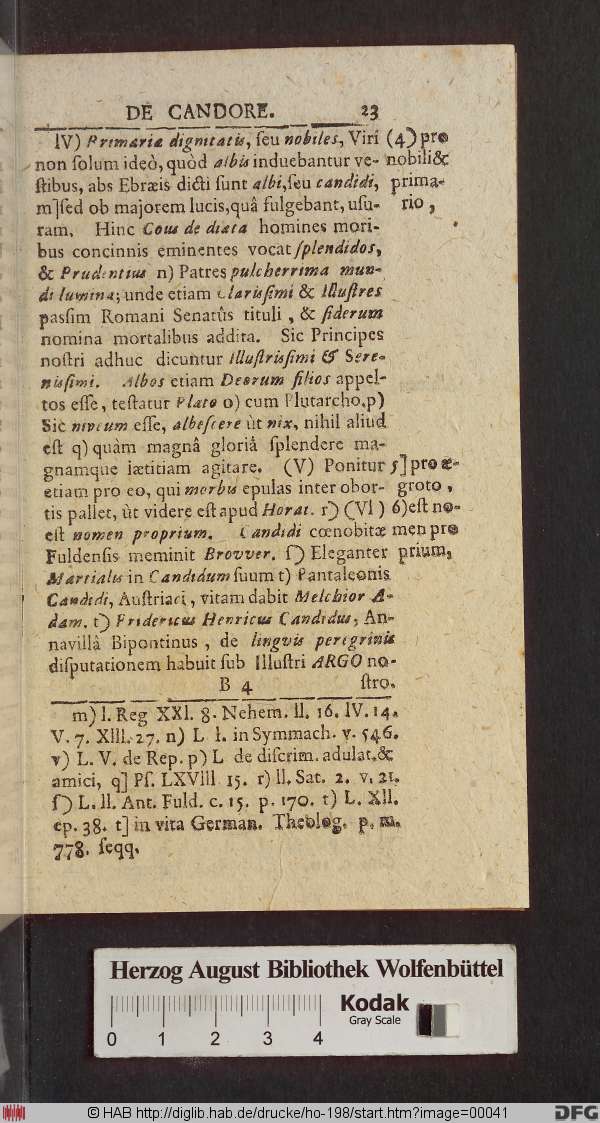 DE CANDORE. 23
IV) Primariæ dignitatis, ſeu nobiles, Viri (4) pro
non ſolum ideò, quòd albis induebantur ve- nobili&
ſtibus, abs Ebræis dicti ſunt albi, ſeu candidi, prima-
m] ſed ob majorem lucis, quâ fulgebant, uſu- rio,
ram. Hinc Cous de diæta homines mori-
bus concinnis eminentes vocat ſplendidos,
& Prudentius n) Patres pulcherrima mun-
di lumina; unde etiam Clarisſimi & Illuſtres
pasſim Romani Senatûs tituli, & ſiderum
nomina mortalibus addita. Sic Principes
noſtri adhuc dicuntur Illuſtrisſimi & Sere-
nisſimi. Albos etiam Deorum filios appel-
tos eſſe, teſtatur Plato o) cum Plutarcho, p)
Sic niveum eſſe, albeſcere ùt nix, nihil aliud
eſt q) quàm magnâ gloriâ ſplendere ma-
gnamque lætitiam agitare. (V) Ponitur 5] pro æ-
etiam pro eo, qui morbis epulas inter obor- groto,
tis pallet, ùt videre eſt apud Horat. r) (VI) 6) eſt no-
eſt nomen proprium. Candidi cœnobitæ men pro
Fuldenſis meminit Brovver. ſ) Eleganter prium,
Martialis in Candidum ſuum t) Pantaleonis
Candidi, Auſtriaci, vitam dabit Melchior A-
dam. t) Fridericus Henricus Candidus, An-
navillâ Bipontinus, de lingvis peregrinis
diſputationem habuit ſub Illuſtri ARGO no-
B 4 ſtro.
m) I. Reg XXI. 8. Nehem. II. 16. IV. 14.
V. 7. XIII. 27. n) L I. in Symmach. v. 546.
v) L. V. de Rep. p) L de diſcrim. adulat. &
amici, q] Pſ. LXVIII 15. r) II. Sat. 2. v. 21.
ſ) L. II. Ant. Fuld. c. 15. p. 170. t) L. XII.
ep. 38. t] in vita German. Theolog. p. m.
778. ſeqq.
Herzog August Bibliothek Wolfenbüttel
Kodak
Gray Scale
0 1 2 3 4
© HAB http://diglib.hab.de/drucke/ho-198/start.htm?image=00041
DFG